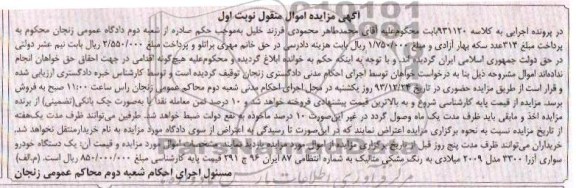 آگهی مزایده اموال منقول نوبت اول
در پرونده اجرایی به کلاسه ۹۳۱۱۲۰ثابت محکوم‌علیه آقای محمدطاهر محمودی فرزند خلیل به‌موجب حکم صادره از شعبه دوم دادگاه عمومی زنجان محکوم به
پرداخت مبلغ ۳۱۴عدد سکه بهار آزادی و مبلغ ۱/۷۵۰/۰۰۰ ریال بابت هزینه دادرسی در حق خانم مهری براتلو و پرداخت مبلغ ۲/۵۵۰/۰۰۰ ریال بابت نیم عشر دولتی
در حق دولت جمهوری اسلامی ایران گردیده‌اند. و با توجه به اینکه حکم به خوانده ابلاغ گردیده و محکوم‌علیه هیچ‌گونه اقدامی در جهت احقاق حق خواهان انجام
نداده‌اند اموال مشروحه ذیل بنا به درخواست خواهان توسط اجرای احکام مدنی دادگستری زنجان توقیف گردیده است و توسط کارشناس خبره دادگستری ارزیابی شده
و قرار است از طریق مزایده حضوری در تاریخ ۹۳/۱۲/۲۴ روز یکشنبه در محل اجرای احکام مدنی شعبه دوم محاکم عمومی زنجان راس ساعت ۱۱:۰۰ صبح به فروش
برسد. مزایده از قیمت پایه کارشناسی شروع و به بالاترین قیمت پیشنهادی فروخته خواهد شد و ۱۰ درصد ثمن معامله نقدا یا به‌صورت چک بانکی(تضمینی) از برنده
مزایده اخذ و مابقی باید ظرف مدت یک ماه وصول گردد در غیر این‌صورت ۱۰ درصد ماخوذه به نفع دولت ضبط خواهد شد. طرفین می‌توانند ظرف مدت یک‌هفته
از تاریخ مزایده نسبت به نحوه برگزاری مزایده اعتراض نمایند که در این‌صورت تا رسیدگی به اعتراض از سوی دادگاه مورد مزایده به نام خریدار منتقل نخواهد شد.
خریداران می‌توانند ظرف مدت پنج روز قبل از تاریخ برگزاری مزایده از اموال مورد مزایده بازدید نمایند. مشخصات اموال مورد مزایده و قیمت آن: یک دستگاه خودرو
سواری آزرا ۳۳۰۰ مدل ۲۰۰۹ میلادی به رنگ مشکی متالیک به شماره انتظامی ۸۷ ایران ۹۶ ج ۲۹۱ قیمت پایه کارشناسی مبلغ ۸۵۰/۰۰۰/۰۰۰ ریال است. (م.الف)
مسئول اجرای احکام شعبه دوم محاکم عمومی زنجان